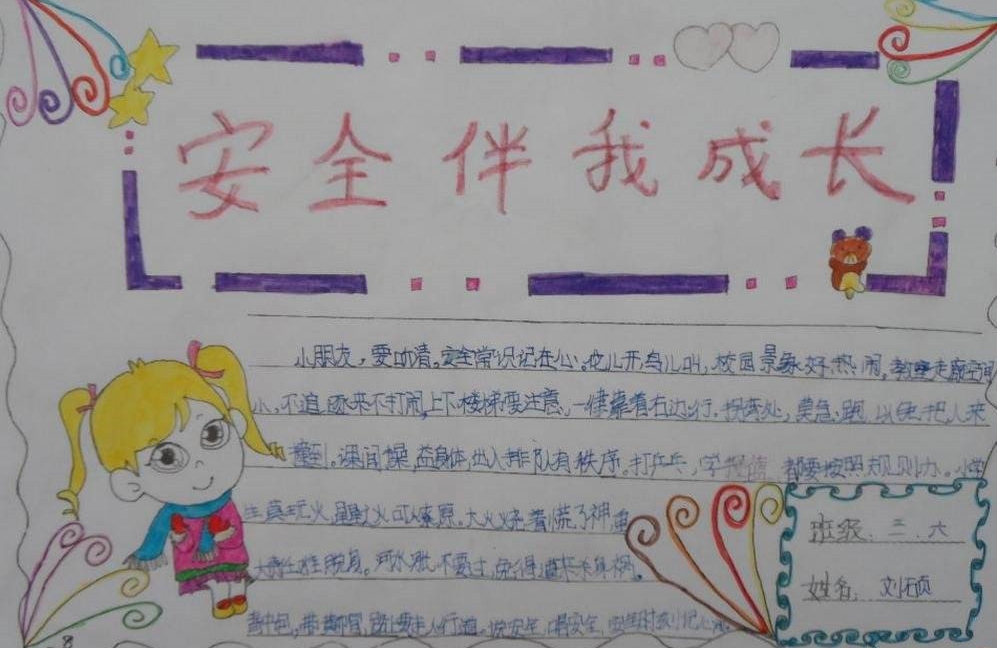 安全伴我成长
小朋友，要听清。安全常识记在心。花儿开鸟儿叫，校园景象好热闹，教室走廊空间
小，不追不打闹，上下楼梯要注意，一律靠着右边行，拐弯处，莫急跑，以免把人来
撞到。课间操，益身体，出入排队有秩序。打乒乓，学 都要按照规则办。小学
生莫玩火，星星火可以燎原。大火烧着慌了神，
脱身。河水涨不要过，免得 来 祸。
背书包，带 帽，路上要走人行道。说安全，唱安全，安全时刻记心
班级：三.六
姓名：刘硕
8